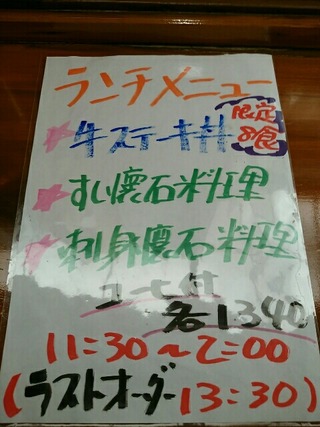 ランチメニュー
牛ステーキ丼 限定8食
すし懐石料理
刺身懐石料理
コーヒー付
各1340
11:30〜2:00
(ラストオーダー13:30)